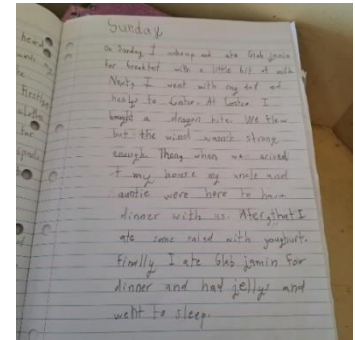 Sunday
On Sunday I wokeup and ate Glab jamin
for breakfast with a little bit of milk
Next, I went with my dad and
to Costco. At Costco I
bought a dragon kite. We flew
but the wind wasn't strong
enough. Thong when we arived
t my house my uncle and
auntie were here to have
dinner with us. After that I
ate some salad with youghurt.
Finally I ate Glab jamin for
dinner and had jellys and
went to sleep.
heard